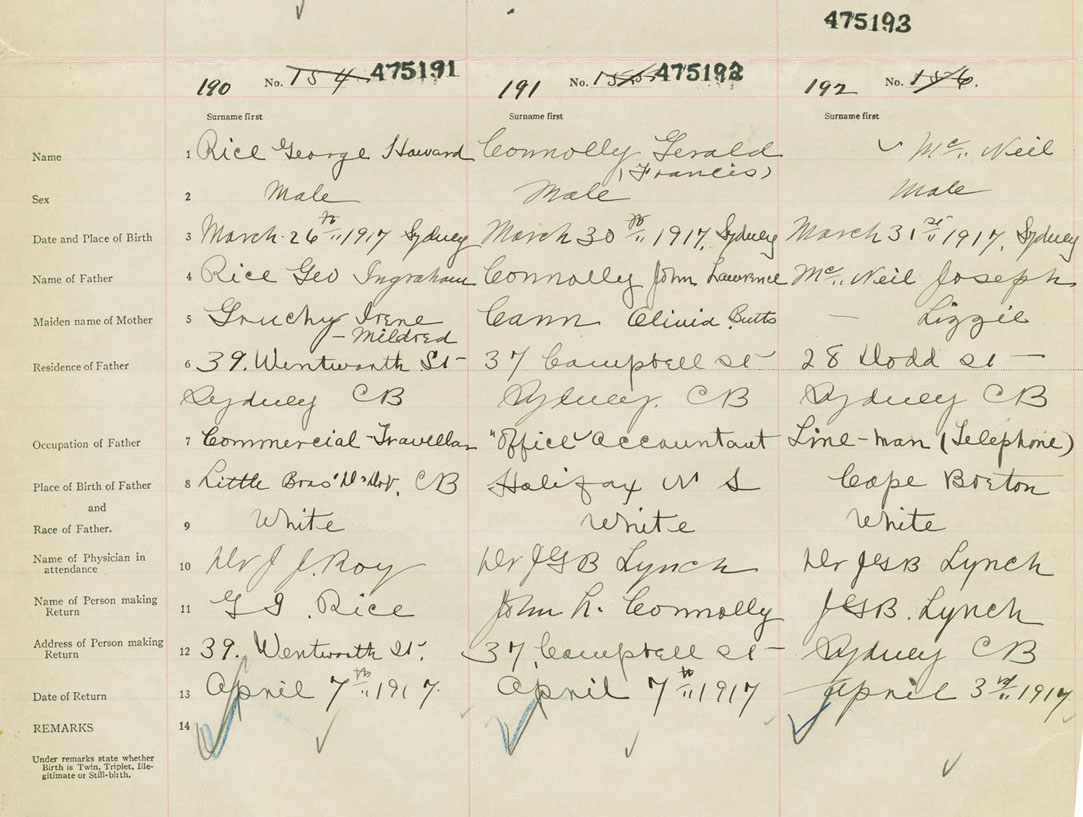 475193
190 No. 154 475191 191 No. 155 475192 192 No. 156.
Surname first Surname first Surname first
Name 1 Rice George Howard Connolly Gerald Mc Neil
(Francis)
Sex 2 Male Male Male
Date and Place of Birth 3 March 26th 1917 Sydney March 30th 1917, Sydney March 31st 1917, Sydney
Name of Father 4 Rice Geo Ingraham Connolly John Lawrence Mc Neil Joseph
Maiden name of Mother 5 Gruchy Irene Cann Olivia Butts — Lizzie
- Mildred
Residence of Father 6 39. Wentworth St 37 Campbell St 28 Dodd St
Sydney CB Sydney. CB Sydney CB
Occupation of Father 7 Commercial-Traveller "Office" Accountant Line-man (Telephone)
Place of Birth of Father 8 Little Bras D'Or, CB Halifax N S Cape Breton
and
Race of Father. 9 White White White
Name of Physician in attendance 10 Dr J J. Roy Dr JGB Lynch Dr JGB Lynch
Name of Person making Return 11 G I. Rice John L. Connolly JGB. Lynch
Address of Person making Return 12 39. Wentworth St. 37, Campbell St Sydney CB
Date of Return 13 April 7th 1917. April 7th 1917 April 3rd 1917
REMARKS 14
Under remarks state whether
Birth is Twin, Triplet, Ille-
gitimate or Still-birth.